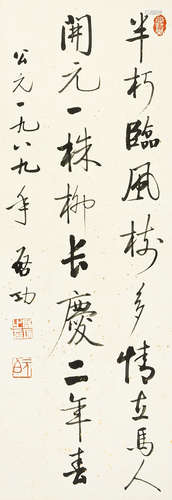 半朽臨風樹多情立馬人
開元一株柳長慶二年春
公元一九八九年 啟功